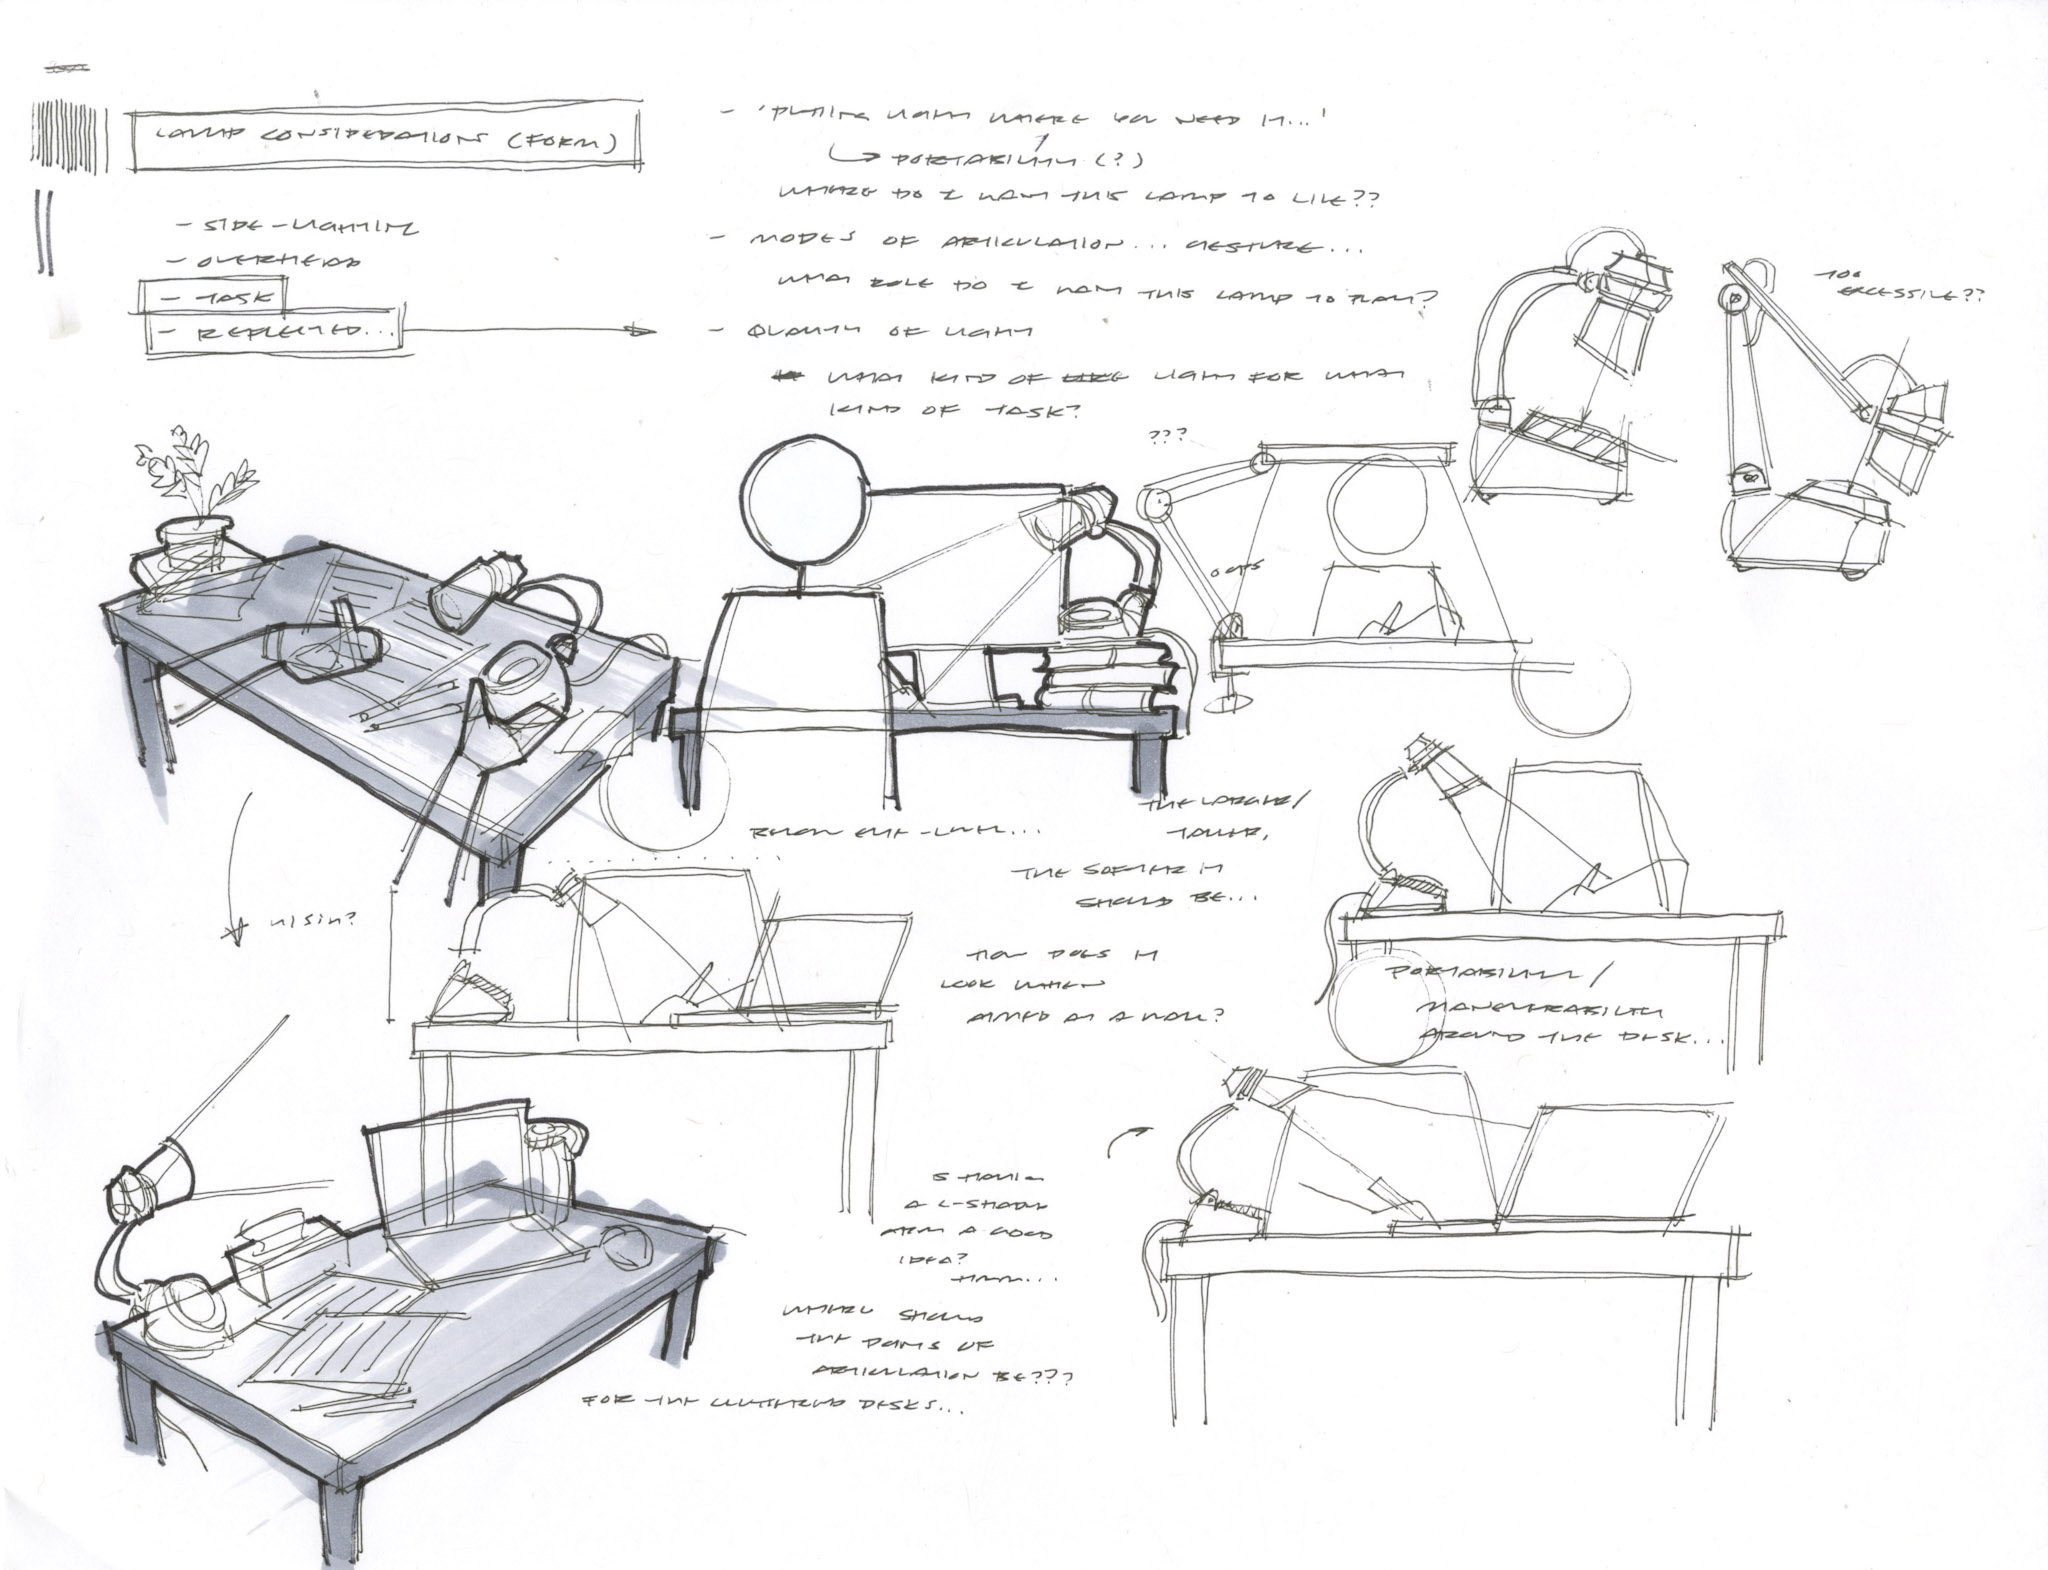 LAMP CONSIDERATIONS (FORM)
- SIDE-LIGHTING
- OVERHEAD
- TASK
- REFLECTED...
- 'PUTTING LIGHT WHERE YOU NEED IT...'
PORTABILITY (?)
WHERE DO I WANT THIS LAMP TO LIVE??
- MODES OF ARTICULATION... GESTURE...
WHAT ROLE DO I WANT THIS LAMP TO PLAY?
- QUALITY OF LIGHT
WHAT KIND OF LIGHT FOR WHAT
KIND OF TASK?
TOO
EXCESSIVE??
???
BELOW EYE-LEVEL...
THE LARGER/
TALLER,
THE SOFTER IT
SHOULD BE...
HOW DOES IT
LOOK WHEN
AIMED AT A WALL?
PORTABILITY/
MANEUVERABILITY
AROUND THE DESK...
IS HAVING
A C-SHAPED
ARM A GOOD
IDEA?
HMM...
WHERE SHOULD
THE POINTS OF
ARTICULATION BE???
FOR THE CLUTTERED DESKS...